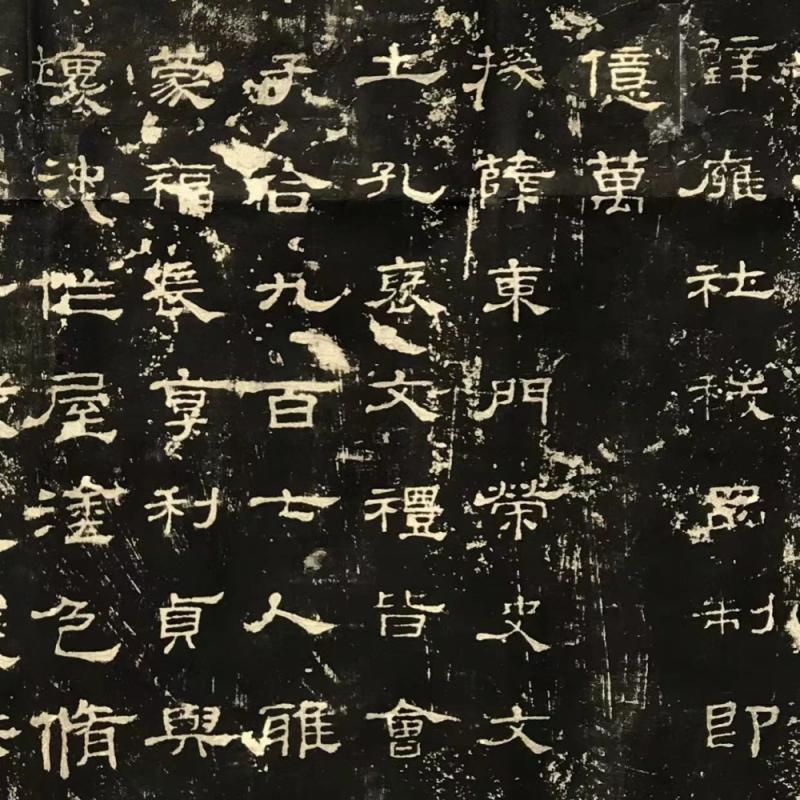 辟雍社稷品制即
億萬
掾薛東門榮史文
士孔褒文禮皆會
子合九百七人雅
蒙福長享利貞與
壞決作屋塗色脩